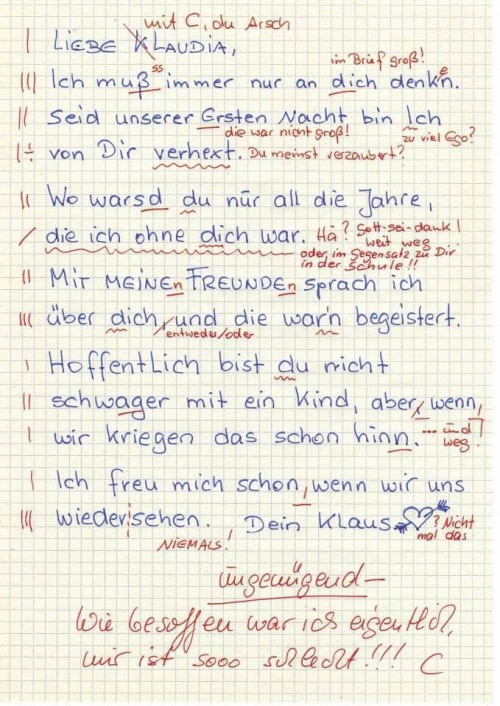 mit C, du Arsch
LIEBE KLAUDIA,
im Brief groß!
Ich muß ss immer nur an dich denk'n. e
Seid unserer Ersten Nacht bin Ich
die war nicht groß! zu viel Ego?
von Dir verhext. Du meinst verzaubert?
Wo warsd du nur all die Jahre,
die ich ohne dich war. Hä? Gott-sei-dank!
weit weg
oder im Gegensatz zu Dir
in der Schule!!
MIT MEINEn FREUNDEn sprach ich
über dich, und die war'n begeistert.
entweder/oder
Hoffentlich bist du nicht
schwager mit ein Kind, aber, wenn,
wir kriegen das schon hinn. ...und
weg!
Ich freu mich schon, wenn wir uns
wieder sehen. Dein Klaus ? Nicht
mal das
NIEMALS!
ungenügend–
Wie besoffen war ich eigentlich,
mir ist sooo schlecht!!! C